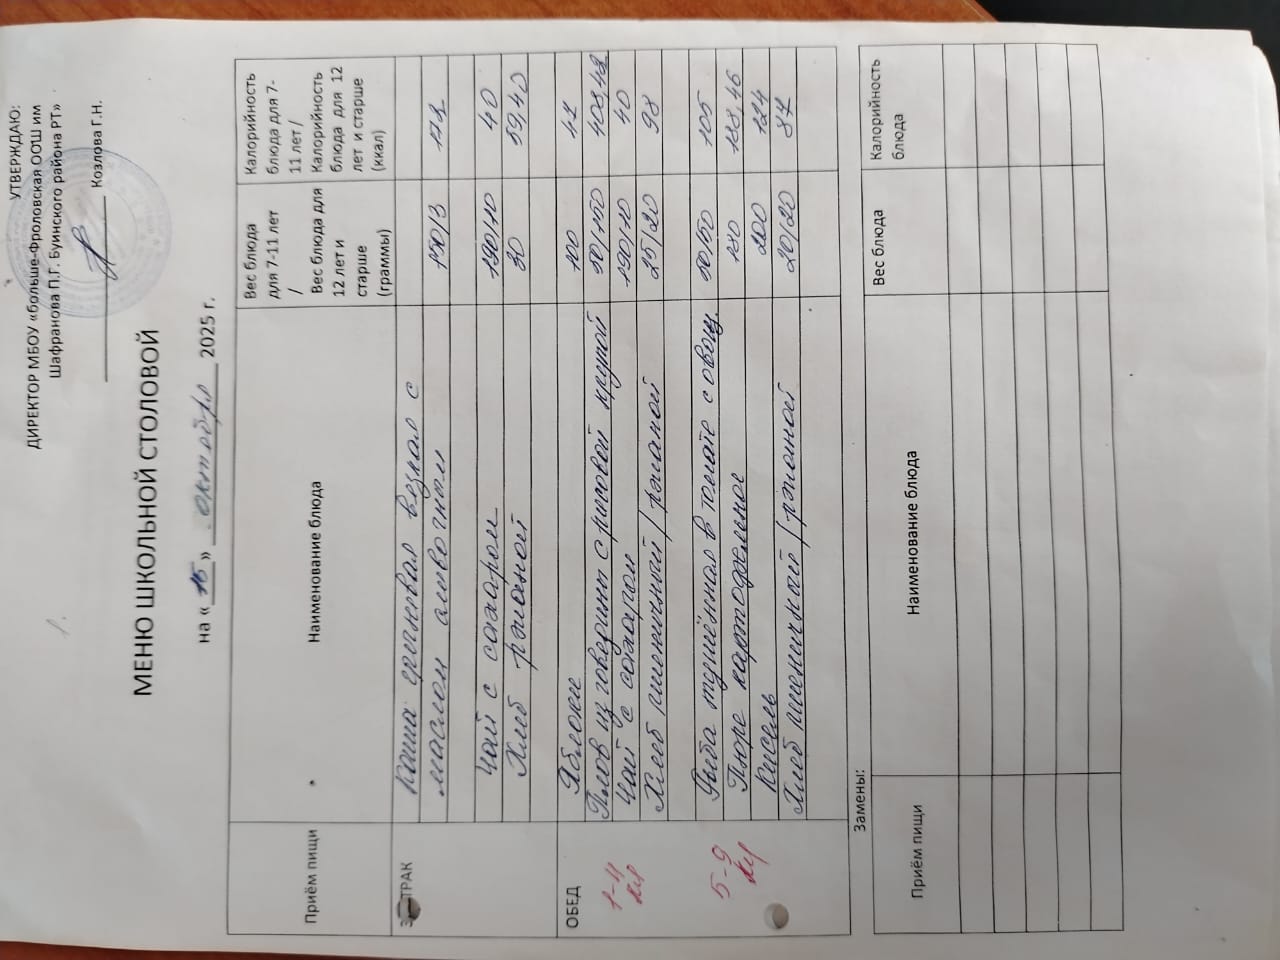 УТВЕРЖДАЮ:
ДИРЕКТОР МБОУ «больше-Фроловская ООШ им
Шафранова П.Г. Буинского района РТ»
Козлова Г.Н.
МЕНЮ ШКОЛЬНОЙ СТОЛОВОЙ
на « 15 » октября 2025 г.
Приём пищи Наименование блюда Вес блюда для 7-11 лет / Вес блюда для 12 лет и старше (граммы) Калорийность блюда для 7-11 лет / Калорийность блюда для 12 лет и старше (ккал)
ТРАК
Каша гречневая вязкая с
маслом сливочным 150/3
Чай с сахаром 190/10 40
Хлеб ржаной 30 59,40
ОБЕД
Яблоки 100
1-4 кл Плов из говядины с рисовой крупой 50/150 403,48
Чай с сахаром 190/10 40
Хлеб пшеничный / ржаной 25/20 98
5-9 кл Рыба тушённая в томате с овощ. 50/50 105
Пюре картофельное
Кисель 200 124
Хлеб пшеничный / ржаной 20/20
Замены:
Приём пищи Наименование блюда Вес блюда Калорийность блюда